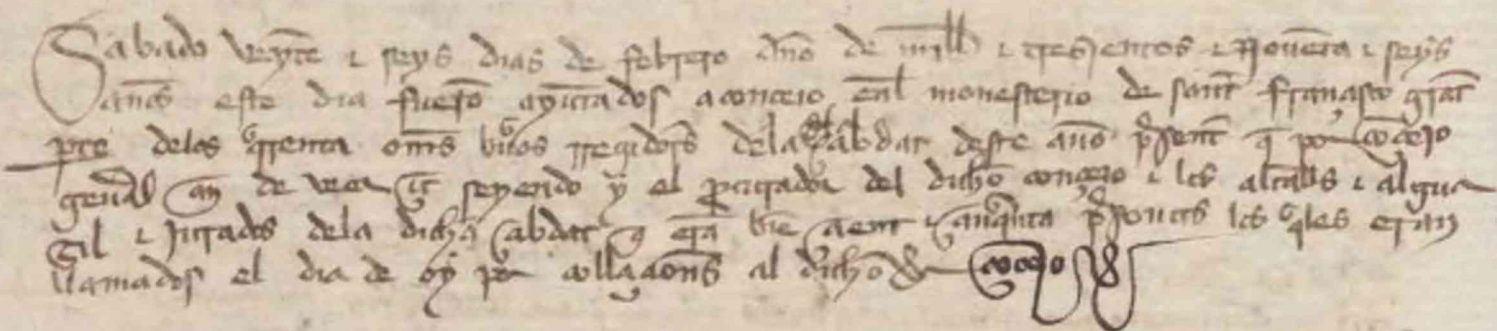 Sabado veynte e seys dias de febrero anno de mill e tresientos e nouenta e seys
annos este dia fueron ayuntados a conceio enel monesterio de sant francisco grant
parte delos quarenta omes buenos rregidores dela dicha çibdat deste anno present que por conceio
general an de veer seyendo y el procurador del dicho conceio e los alcalles e algua
zil e jurados dela dicha çibdat que eran bien çient e çinquenta presonas los quales eran
llamados el dia de oy por collaçiones al dicho conceio